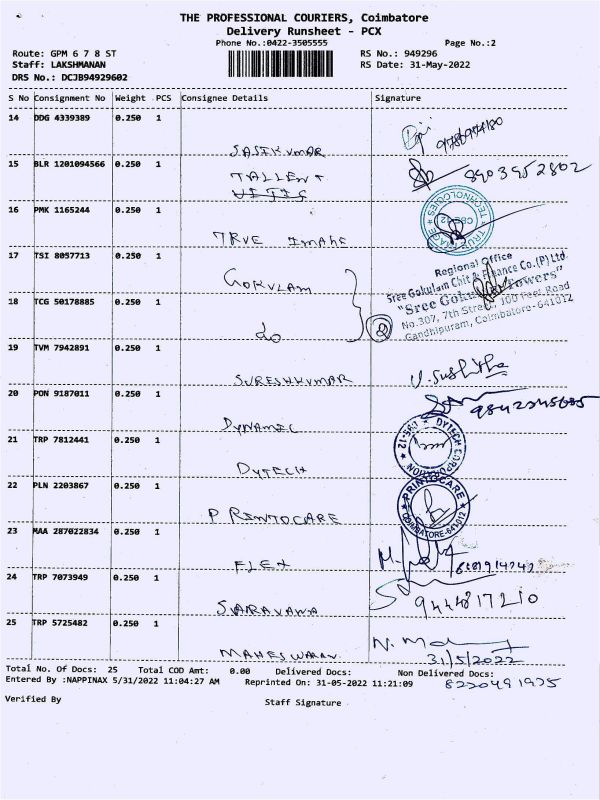 THE PROFESSIONAL COURIERS, Coimbatore
Delivery Runsheet - PCX
Phone No.:0422-3505555 Page No.:2
Route: GPM 6 7 8 ST RS No.: 949296
Staff: LAKSHMANAN RS Date: 31-May-2022
DRS No.: DCJB94929602
S No Consignment No Weight PCS Consignee Details Signature
14 DDG 4339389 0.250 1
SASIKUMAR
15 BLR 1201094566 0.250 1 8903952802
TALLENT
16 PMK 1165244 0.250 1
TRUE IMAGE
TRUE IMAGE TECHNOLOGIES
17 TSI 8057713 0.250 1
GOKULAM
Regional Office
Sree Gokulam Chit & Finance Co.(P) Ltd.
"Sree Gokulam Towers"
No.307, 7th Street, 100 Feet Road
Gandhipuram, Coimbatore-641012
18 TCG 50178885 0.250 1
do
2
19 TVM 7942891 0.250 1
SURESHKUMAR V.Sushitha
20 PON 9187011 0.250 1
DYNAMEC
21 TRP 7812441 0.250 1
DYTECH
22 PLN 2203867 0.250 1
PRINTOCARE
PRINTOCARE
COIMBATORE-641012
23 MAA 287022834 0.250 1
FLEX
24 TRP 7073949 0.250 1
SARAVANA 9444817210
25 TRP 5725482 0.250 1
MAHESWARAN 31/5/2022
Total No. Of Docs: 25 Total COD Amt: 0.00 Delivered Docs: Non Delivered Docs:
Entered By :NAPPINAX 5/31/2022 11:04:27 AM Reprinted On: 31-05-2022 11:21:09 8220491925
Verified By Staff Signature